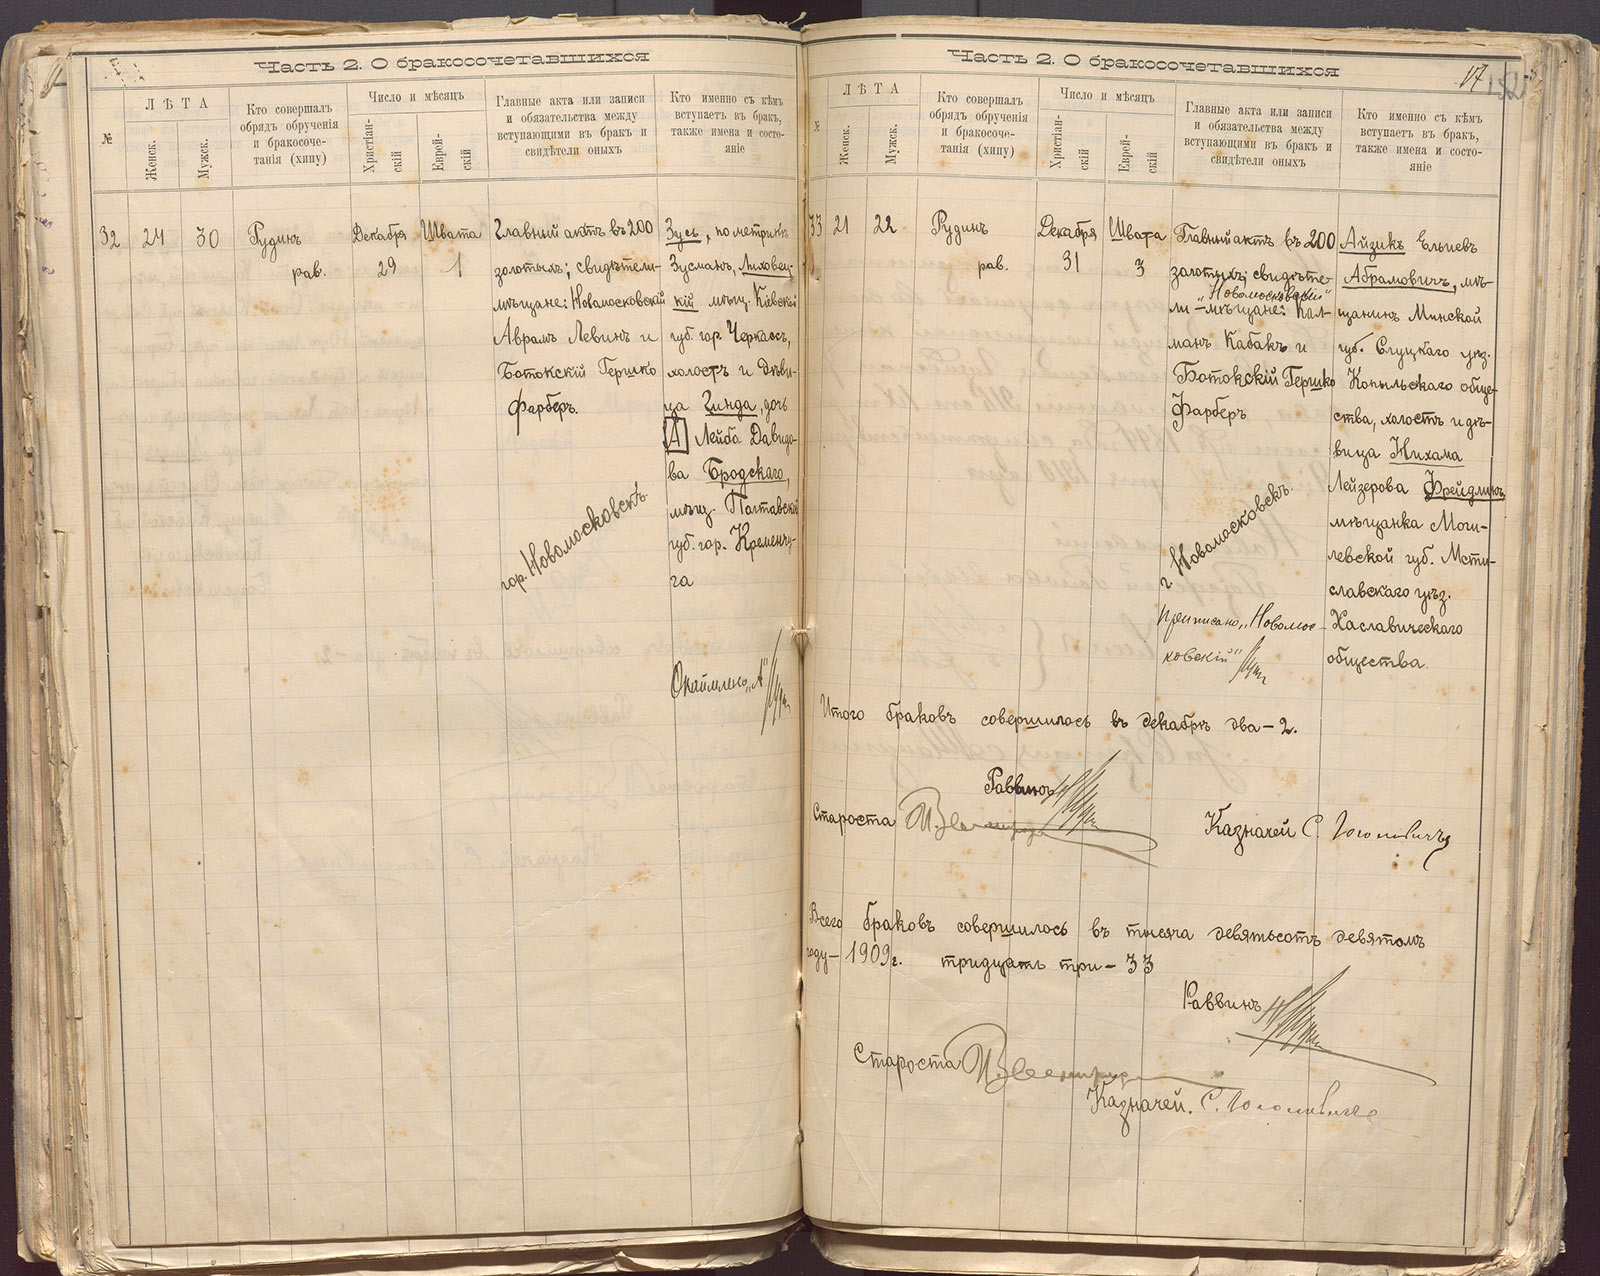 Часть 2. О бракосочетавшихся
№
ЛѢТА
Женск.
Мужск.
Кто совершалъ
обрядъ обрученія
и бракосоче-
танія (хипу)
Число и мѣсяцъ
Христіан-
скій
Еврей-
скій
Главные акта или записи
и обязательства между
вступающими въ бракъ и
свидѣтели оныхъ
Кто именно съ кѣмъ
вступаетъ въ бракъ,
также имена и состо-
яніе
32
24
30
Рудинъ
рав.
Декабря
29
Швата
1
Главный актъ въ 200
золотыхъ; свидѣтели-
мѣщане: Новомосковскій
Аврамъ Левинъ и
Ботокскій Гершко
Фарберъ.
гор. Новомосковскъ.
Зусь, по метрикѣ
Зусманъ, Лиховец-
кій мѣщ. Кіевской
губ. гор. Черкассъ,
холостъ и дѣви-
ца Гинда, дочь
А Лейба Давидо-
ва Бродскаго,
мѣщ. Полтавской
губ. гор. Кременчу-
га
Окаймлено „А"
Часть 2. О бракосочетавшихся
17
№
ЛѢТА
Женск.
Мужск.
Кто совершалъ
обрядъ обрученія
и бракосоче-
танія (хипу)
Число и мѣсяцъ
Христіан-
скій
Еврей-
скій
Главные акта или записи
и обязательства между
вступающими въ бракъ и
свидѣтели оныхъ
Кто именно съ кѣмъ
вступаетъ въ бракъ,
также имена и состо-
яніе
33
21
22
Рудинъ
рав.
Декабря
31
Швата
3
Главный актъ въ 200
золотыхъ; свидѣте-
„Новомосковскій"
ли-мѣщане: Кал-
манъ Кабакъ и
Ботокскій Гершко
Фарберъ
г. Новомосковскъ.
приписано „Новомос-
ковскій"
Айзикъ Ельіевъ
Абрамовичъ, мѣ-
щанинъ Минской
губ. Слуцкаго уѣз.
Копыльскаго обще-
ства, холостъ и дѣ-
вица Нихама
Лейзерова Фрейдлинъ
мѣщанка Моги-
левской губ. Мсти-
славскаго уѣз.
Хаславическаго
общества.
Итого браковъ совершилось въ декабрѣ два-2.
Раввинъ
Староста
Казначей С.
Всего браковъ совершилось въ тысяча девятьсотъ девятомъ
году-1909г. тридцать три-33
Раввинъ
Староста
Казначей. С.